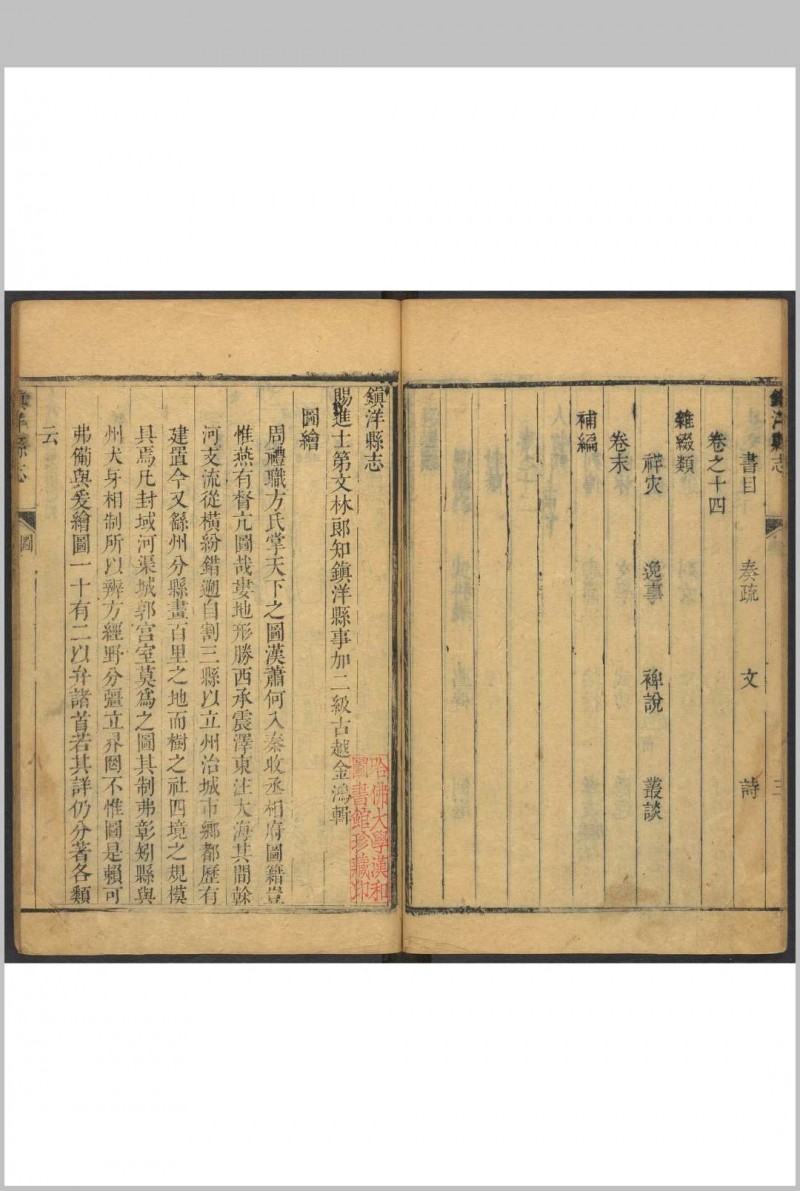 鎮洋縣志
三
書目 奏疏 文 詩
卷之十四
雜綴類
祥灾 逸事 稗說 叢談
卷末
補編
鎮洋縣志
賜進士第文林郎知鎮洋縣事加二級古越金鴻輯
圖繪
周禮職方氏掌天下之圖漢蕭何入秦收丞相府圖籍豈
惟燕有督亢圖哉婁地形勝西承震澤東注大海其間幹
河支流從橫紛錯迺自割三縣以立州治城市鄉都歷有
建置今又繇州分縣畫百里之地而樹之社四境之規模
具焉凡封域河渠城郭宮室莫爲之圖其制弗彰矧縣與
州犬身相制所以辨方經野分彊立界罔不惟圖是賴可
弗備與爰繪圖一十有二以弁諸首若其詳仍分著各類
云
鎮洋縣志
圖
哈佛大學漢和
圖書館珍藏印